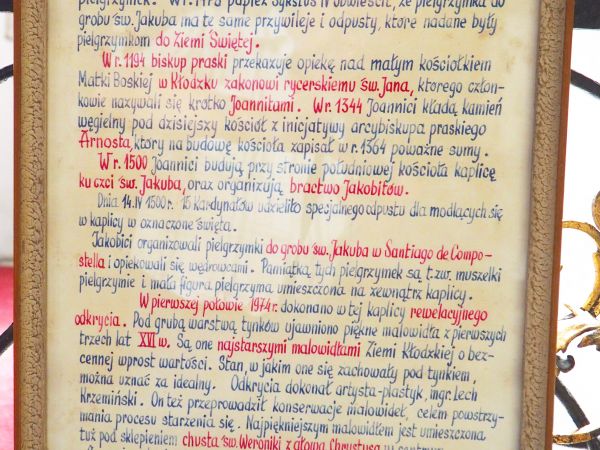 pielgrzymek. W r. 1478 papież Sykstus IV obwieścił, że pielgrzymka do
grobu św. Jakuba ma te same przywileje i odpusty, które nadane były
pielgrzymkom do Ziemi Świętej.
W r. 1194 biskup praski przekazuje opiekę nad małym kościołkiem
Matki Boskiej w Kłodzku zakonowi rycerskiemu św. Jana, którego człon-
kowie nazywali się krótko Joannitami. W r. 1344 Joannici kładą kamień
węgielny pod dzisiejszy kościół z inicjatywy arcybiskupa praskiego
Arnosta, który na budowę kościoła zapisał w r. 1364 poważne sumy.
W r. 1500 Joannici budują przy stronie południowej kościoła kaplicę
ku czci św. Jakuba, oraz organizują bractwo Jakobitów.
Dnia 14. IV 1500 r. 15 kardynałów udzieliło specjalnego odpustu dla modlących się
w kaplicy w oznaczone święta.
Jakobici organizowali pielgrzymki do grobu św. Jakuba w Santiago de Compo-
stella i opiekowali się wędrowcami. Pamiątką tych pielgrzymek są t.zw. muszelki
pielgrzymie i mała figura pielgrzyma umieszczona na zewnątrz kaplicy.
W pierwszej połowie 1974 r. dokonano w tej kaplicy rewelacyjnego
odkrycia. Pod grubą warstwą tynków ujawniono piękne malowidła z pierwszych
trzech lat XVI w. Są one najstarszymi malowidłami Ziemi Kłodzkiej o bez-
cennej wprost wartości. Stan, w jakim one się zachowały pod tynkiem,
można uznać za idealny. Odkrycia dokonał artysta-plastyk, ingr. Lech
Krzemiński. On też przeprowadził konserwację malowideł, celem powstrzy-
mania procesu starzenia się. Najpiękniejszym malowidłem jest umieszczona
tuż pod sklepieniem chusta św. Weroniki z głową Chrystusa w centrum